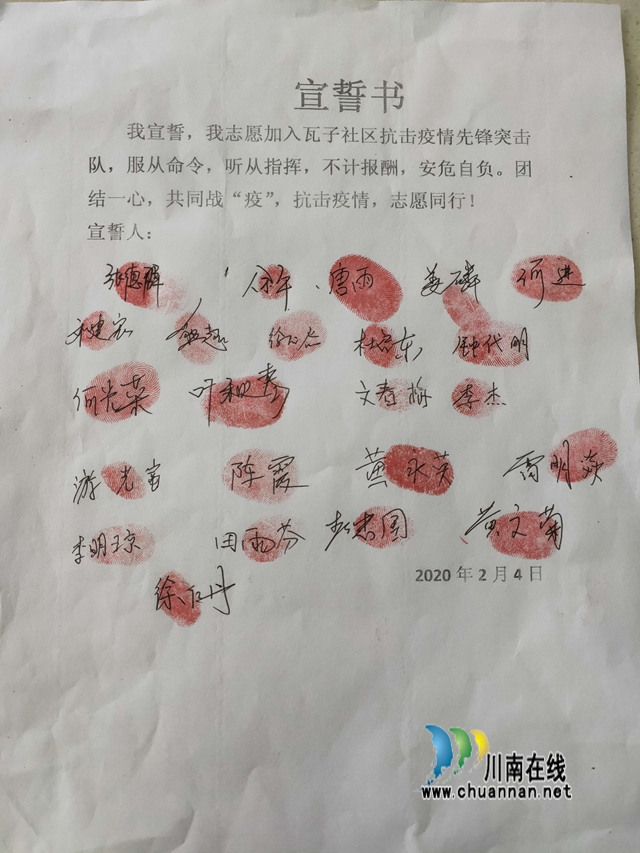 宣誓书
我宣誓，我志愿加入瓦子社区抗击疫情先锋突击
队，服从命令，听从指挥，不计报酬，安危自负。团
结一心，共同战“疫”，抗击疫情，志愿同行！
宣誓人：
张德辉 余午 唐雨 姜磷 何进
杜 东 钟代明
何光荣 叶和春 文春梅 李杰
游光富 陈霞 黄永英 雷明焱
李明琼 田雨芬 国 黄文菊
徐 丹
2020年2月4日
川南在线
www.chuannan.net